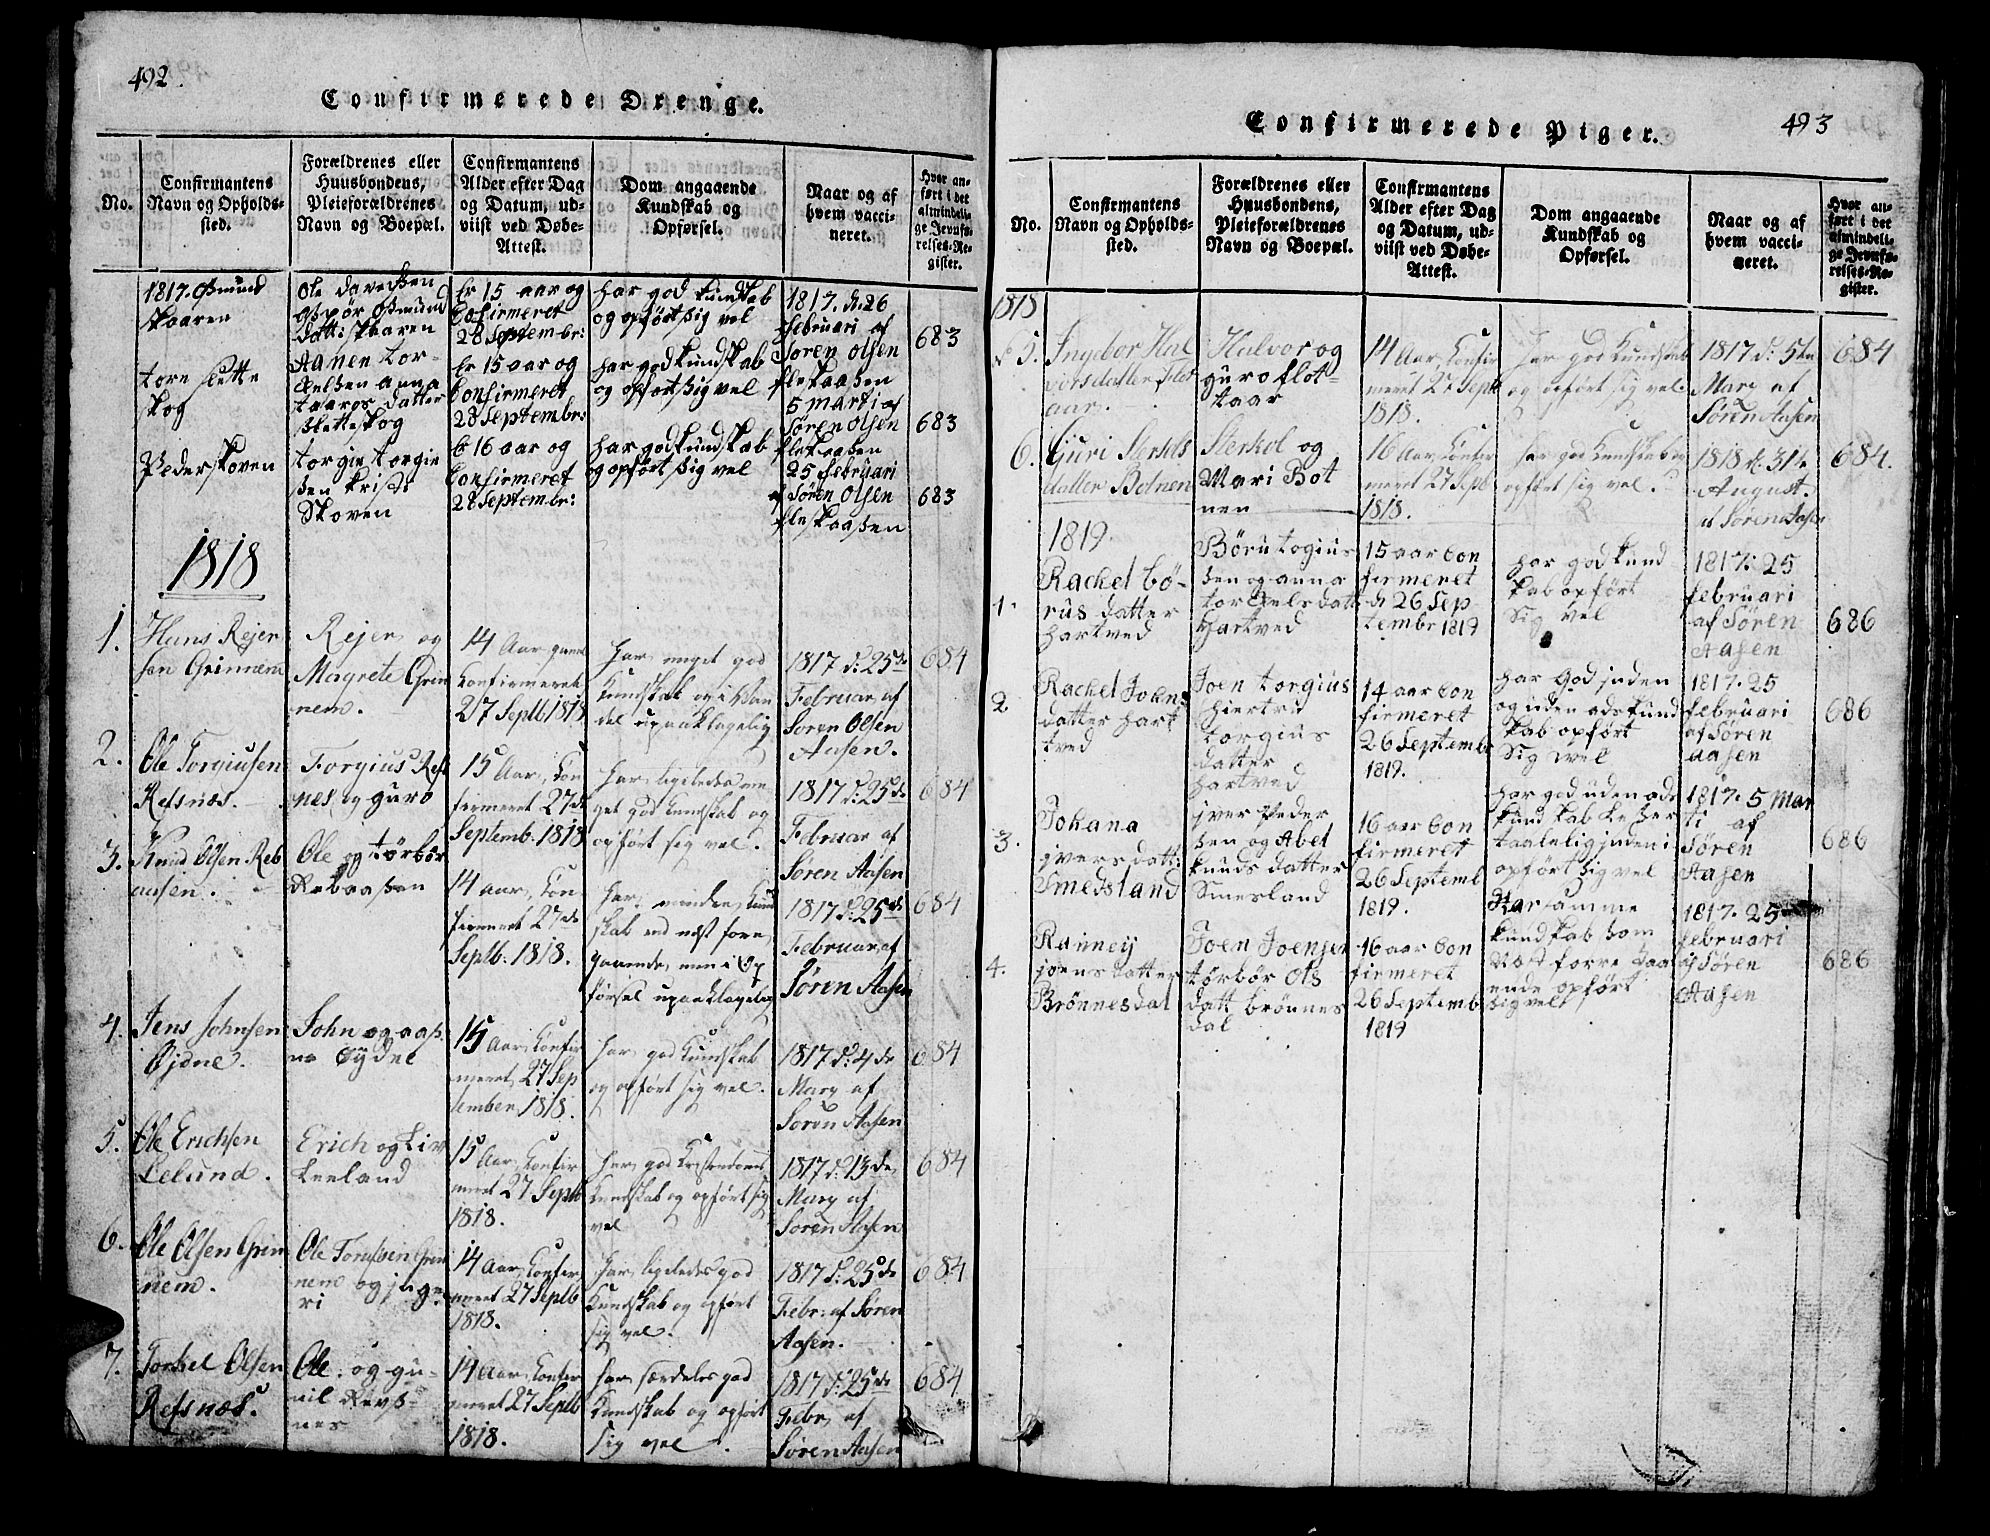 492.
Confirmerede Drenge.
No.
Confirmantens
Navn og Opholds-
sted.
Forældrenes eller
Huusbondens,
Pleieforældrenes
Navn og Boepæl.
Confirmantens
Alder efter Dag
og Datum, ud-
viist ved Døbe-
Attest.
Dom angaaende
Kundskab og
Opførsel.
Naar og af
hvem vacci-
neret.
Hvor an-
ført i det
almindeli-
ge Jevnfø-
relses-Re-
gister.
1817. Osmund
Skaaren
Ole
Osmund
datt: Skaaren
Er 15 aar og
Confirmeret
28 Septembr:
har god kundskab
og opført sig vel
1817. d. 26
februari af
Søren Olsen
fleskaasen
683
tore slette
skog
Aanen tor-
kelsen anna
taaros datter
sletteskog
Er 15 aar og
Confirmeret
28 Septembr:
har god kundskab
og opført sig vel
5 marti af
Søren Olsen
fleskaasen
683
Peder skoven
torgie torgie
sen
Skoven
Er 16 aar og
Confirmeret
28 Septembr:
har god kundskab
og opført sig vel
25 februari
af Søren Olsen
fleskaasen
683
1818
1. Hans Rejer
sen Grinnem
Rejer og
Magrete Grin
nem.
14 Aar gaml
Confirmeret
27 Septb 1818
har meget god
Kundskab og i Van
del upaaklagelig
1817 d: 25de
Februar af
Søren Olsen
Aasen.
684
2. Ole Torgiusen
Refsnæs.
Torgius Refs
nes og guro
15 Aar, Con
firmeret 27de
Septemb. 1818
har ligeledes me
get god kundskab og
opført sig vel.
1817 d: 25de
Februar af
Søren Aasen
684
3. Knud Olsen Reb
aasen.
Ole og tørbør
Rebaasen
14 aar, Con
firmeret 27de
Septb: 1818.
har mindre Kund
skab end næst fore
gaaende, men i Op
førsel upaaklagelig
1817 d: 25de
Februar af
Søren Aasen
684
4. Jens Johnsen
Øjdne.
John og aas
ne Øydne
15 aar, Confir
meret 27 Sep
tember 1818.
har god Kundskab
og opført sig vel.
1817 d: 4de
Marz af
Søren Aasen
684
5. Ole Erichsen
Lelund.
Erich og Liv
Leeland
15 Aar, Confir
meret 27 Septb
1818.
har god Kristendoms
Kundskab og opført sig
vel
1817 d: 13de
Marz af
Søren Aasen
684
6. Ole Olsen Grin
nem.
Ole Grin
nem og inge
ri
14 Aar, Confir
meret 27 Septb
1818.
har ligeledes god
Kundskab og opført
sig vel.
1817 d: 25de
Febr: af Søren
Aasen.
684
7. Torkel Olsen
Refsnæs.
Ole og gu-
nil Revs-
nes
14 Aar, Confir
meret 27 Septb
1818.
har særdeles god
Kundskab og opført
sig vel.
1817 d: 25de
Febr. af
Søren Aasen
684
Confirmerede Piger.
493
No.
Confirmantens
Navn og Opholds-
sted.
Forældrenes eller
Huusbondens,
Pleieforældrenes
Navn og Boepæl.
Confirmantens
Alder efter Dag
og Datum, ud-
viist ved Døbe-
Attest.
Dom angaaende
Kundskab og
Opførsel.
Naar og af
hvem vacci-
neret.
Hvor an-
ført i det
almindeli-
ge Jevnfø-
relses-Re-
gister.
1818
5. Ingebor Hal
vorsdatter flot
aar.
Halvor og
guro flot-
taar
14 Aar, Confir
meret 27 Septb
1818.
har god Kundskab
og opført sig vel.
1817 d: 5te
Marz af
Søren Aasen
684
6. Guri Sterkels
datter Botnen
Sterkel og
Mari Bot
nen
16 Aar, Confir
meret 27 Septb
1818.
har god Kundskab og
opført sig vel.
1818 d. 31te
August.
af Søren Aasen
684.
1819.
1. Rachel bø-
rus datter
hartved
Børu togius
sen og anna
torkelsdatt
Hartved
15 aar Con
firmeret
d: 26 Sep
tembr 1819
har god kund
skab opført
Sig vel
1817: 25
februari
af Søren
Aasen
686
2. Rachel Joens
datter hart
tved
Joen torgius
hiertru
torgius
datter
hartved
14 aar Con
firmeret
26 Septembr
1819.
har God inden
og uden ads kund
skab opført
Sig vel
1817. 25
februari
af Søren
aasen
686
3. Johana
jversdatt:
Smedsland
jver Peder
sen og Abel
kunds datter
Smesland
16 aar Con
firmeret
26 Septemb
1819.
har god uden ads
kundskab
taalelig inden i
opført sig vel
1817. 5 Mar
ti af
Søren
Aasen
686
4. Ranney
joens datter
Brønnesdal
Joen Joensen
tørbør Ols
datt brønnes
dal
16 aar Con
firmeret
26 Septemb
1819
Har samme
kundskab som
Næst forre gaa
ende opført
sig vel
1817. 25
februari
af Søren
Aasen
686